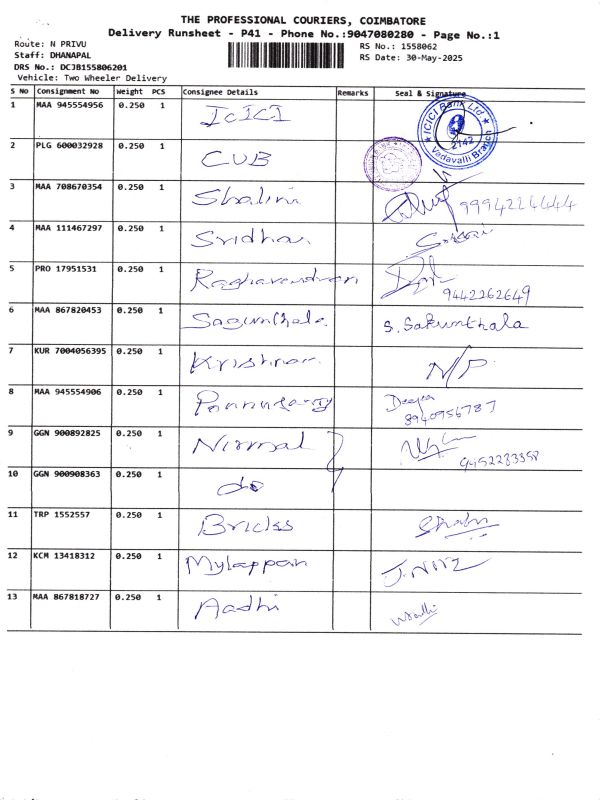 THE PROFESSIONAL COURIERS, COIMBATORE
Delivery Runsheet - P41 - Phone No.:9047080280 - Page No.:1
Route: N PRIVU
RS No.: 1558062
Staff: DHANAPAL
RS Date: 30-May-2025
DRS No.: DCJB155806201
Vehicle: Two Wheeler Delivery
S No Consignment No Weight PCS Consignee Details Remarks Seal & Signature
1 MAA 945554956 0.250 1 ICICI ICICI Bank Ltd 2142 Vadavalli Branch
2 PLG 600032928 0.250 1 CUB
3 MAA 708670354 0.250 1 Shalini 9994224444
4 MAA 111467297 0.250 1 Sridhar
5 PRO 17951531 0.250 1 Raghavendran 9442262649
6 MAA 867820453 0.250 1 Sagunthala S. Sakunthala
7 KUR 7004056395 0.250 1 Krishnan N/P
8 MAA 945554906 0.250 1 Ponnusamy Deepa 8940956787
9 GGN 900892825 0.250 1 Nirmal
10 GGN 900908363 0.250 1 do
11 TRP 1552557 0.250 1 Bricks
12 KCM 13418312 0.250 1 Mylappan
13 MAA 867818727 0.250 1 Aadhi